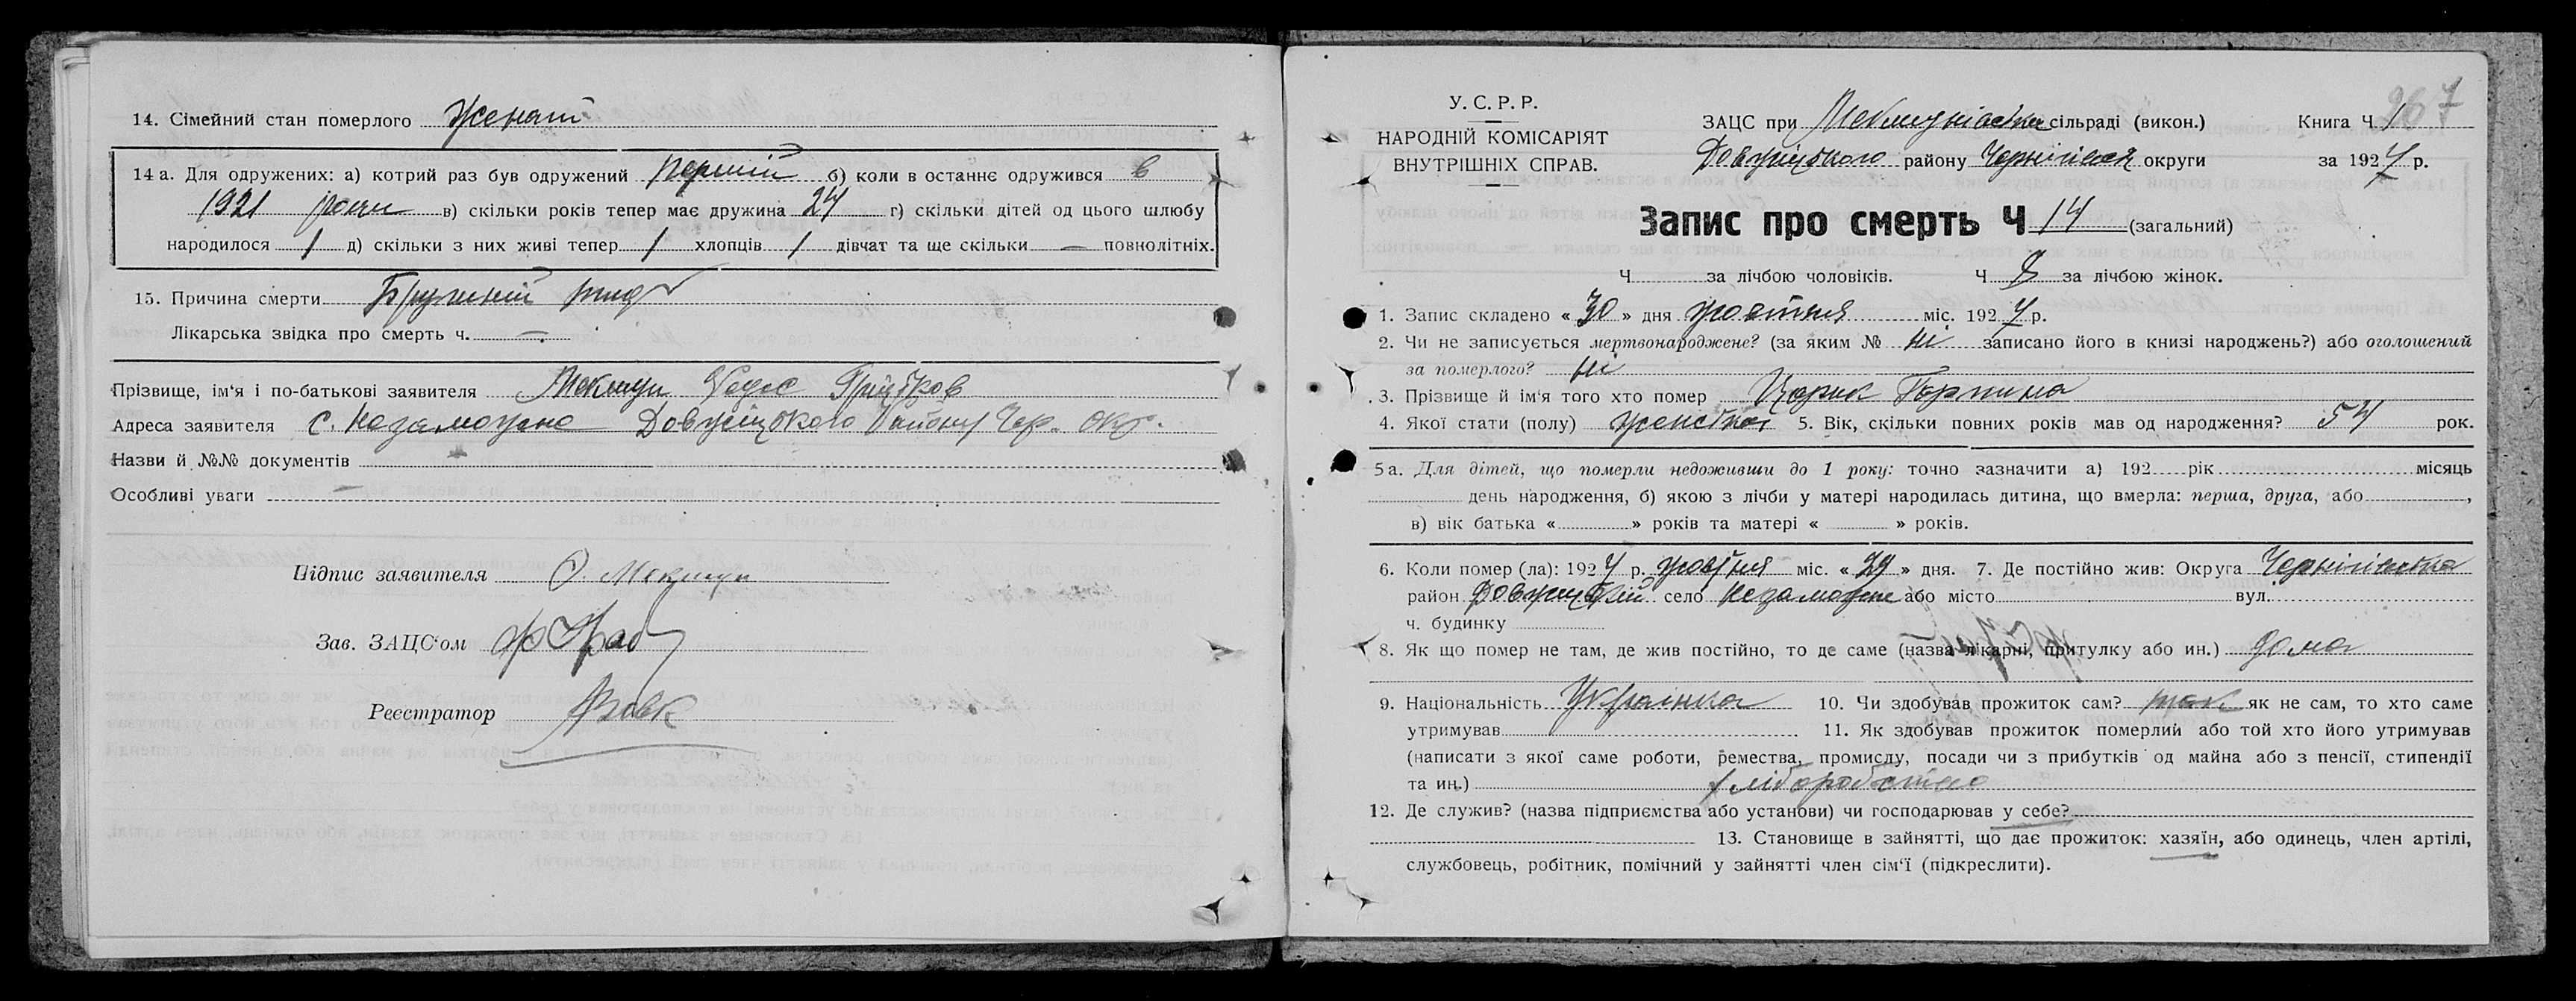 14. Сімейний стан померлого Женат
14 а. Для одружених: а) котрий раз був одружений перший б) коли в останнє одружився в
1921 році в) скільки років тепер має дружина 24 г) скільки дітей од цього шлюбу
народилося 1 д) скільки з них живі тепер 1 хлопців 1 дівчат та ще скільки — повнолітніх.
15. Причина смерти Брушний тиф
Лікарська звідка про смерть ч. —
Прізвище, ім'я і по-батькові заявителя Мекшун Федос
Адреса заявителя с. Незаможне Довжицького Району Чер. окр.
Назви й №№ документів —
Особливі уваги —
Підпис заявителя Ф. Мекшун
Зав. ЗАЦС'ом
Реєстратор Вовк
267
У. С. Р. Р.
НАРОДНІЙ КОМІСАРІЯТ
ВНУТРІШНІХ СПРАВ.
ЗАЦС при Мекшунівській сільраді (викон.) Книга Ч. 1
Довжицького району Чернігівської округи за 1927 р.
Запис про смерть Ч 14 (загальний)
Ч за лічбою чоловіків. Ч 8 за лічбою жінок.
1. Запис складено «30» дня жовтня міс. 1927 р.
2. Чи не записується мертвонароджене? (за яким № ні записано його в книзі народжень?) або оголошений
за померлого? ні
3. Прізвище й ім'я того хто помер Цорик Горпина
4. Якої стати (полу) женська 5. Вік, скільки повних років мав од народження? 54 рок.
5 а. Для дітей, що померли недоживши до 1 року: точно зазначити а) 192 рік місяць
день народження, б) якою з лічби у матері народилась дитина, що вмерла: перша, друга, або ,
в) вік батька « » років та матері « » років.
6. Коли помер (ла): 1927 р. жовтня міс. «29» дня. 7. Де постійно жив: Округа Чернігівська
район Довжицький село Незаможне або місто вул.
ч. будинку
8. Як що помер не там, де жив постійно, то де саме (назва лікарні, притулку або ин.) дома
9. Національність Українка 10. Чи здобував прожиток сам? так як не сам, то хто саме
утримував 11. Як здобував прожиток померлий або той хто його утримував
(написати з якої саме роботи, ремества, промислу, посади чи з прибутків од майна або з пенсії, стипендії
та ин.) хліборобство
12. Де служив? (назва підприємства або установи) чи господарював у себе?
13. Становище в зайнятті, що дає прожиток: хазяїн, або одинець, член артілі,
службовець, робітник, помічний у зайнятті член сім'ї (підкреслити).